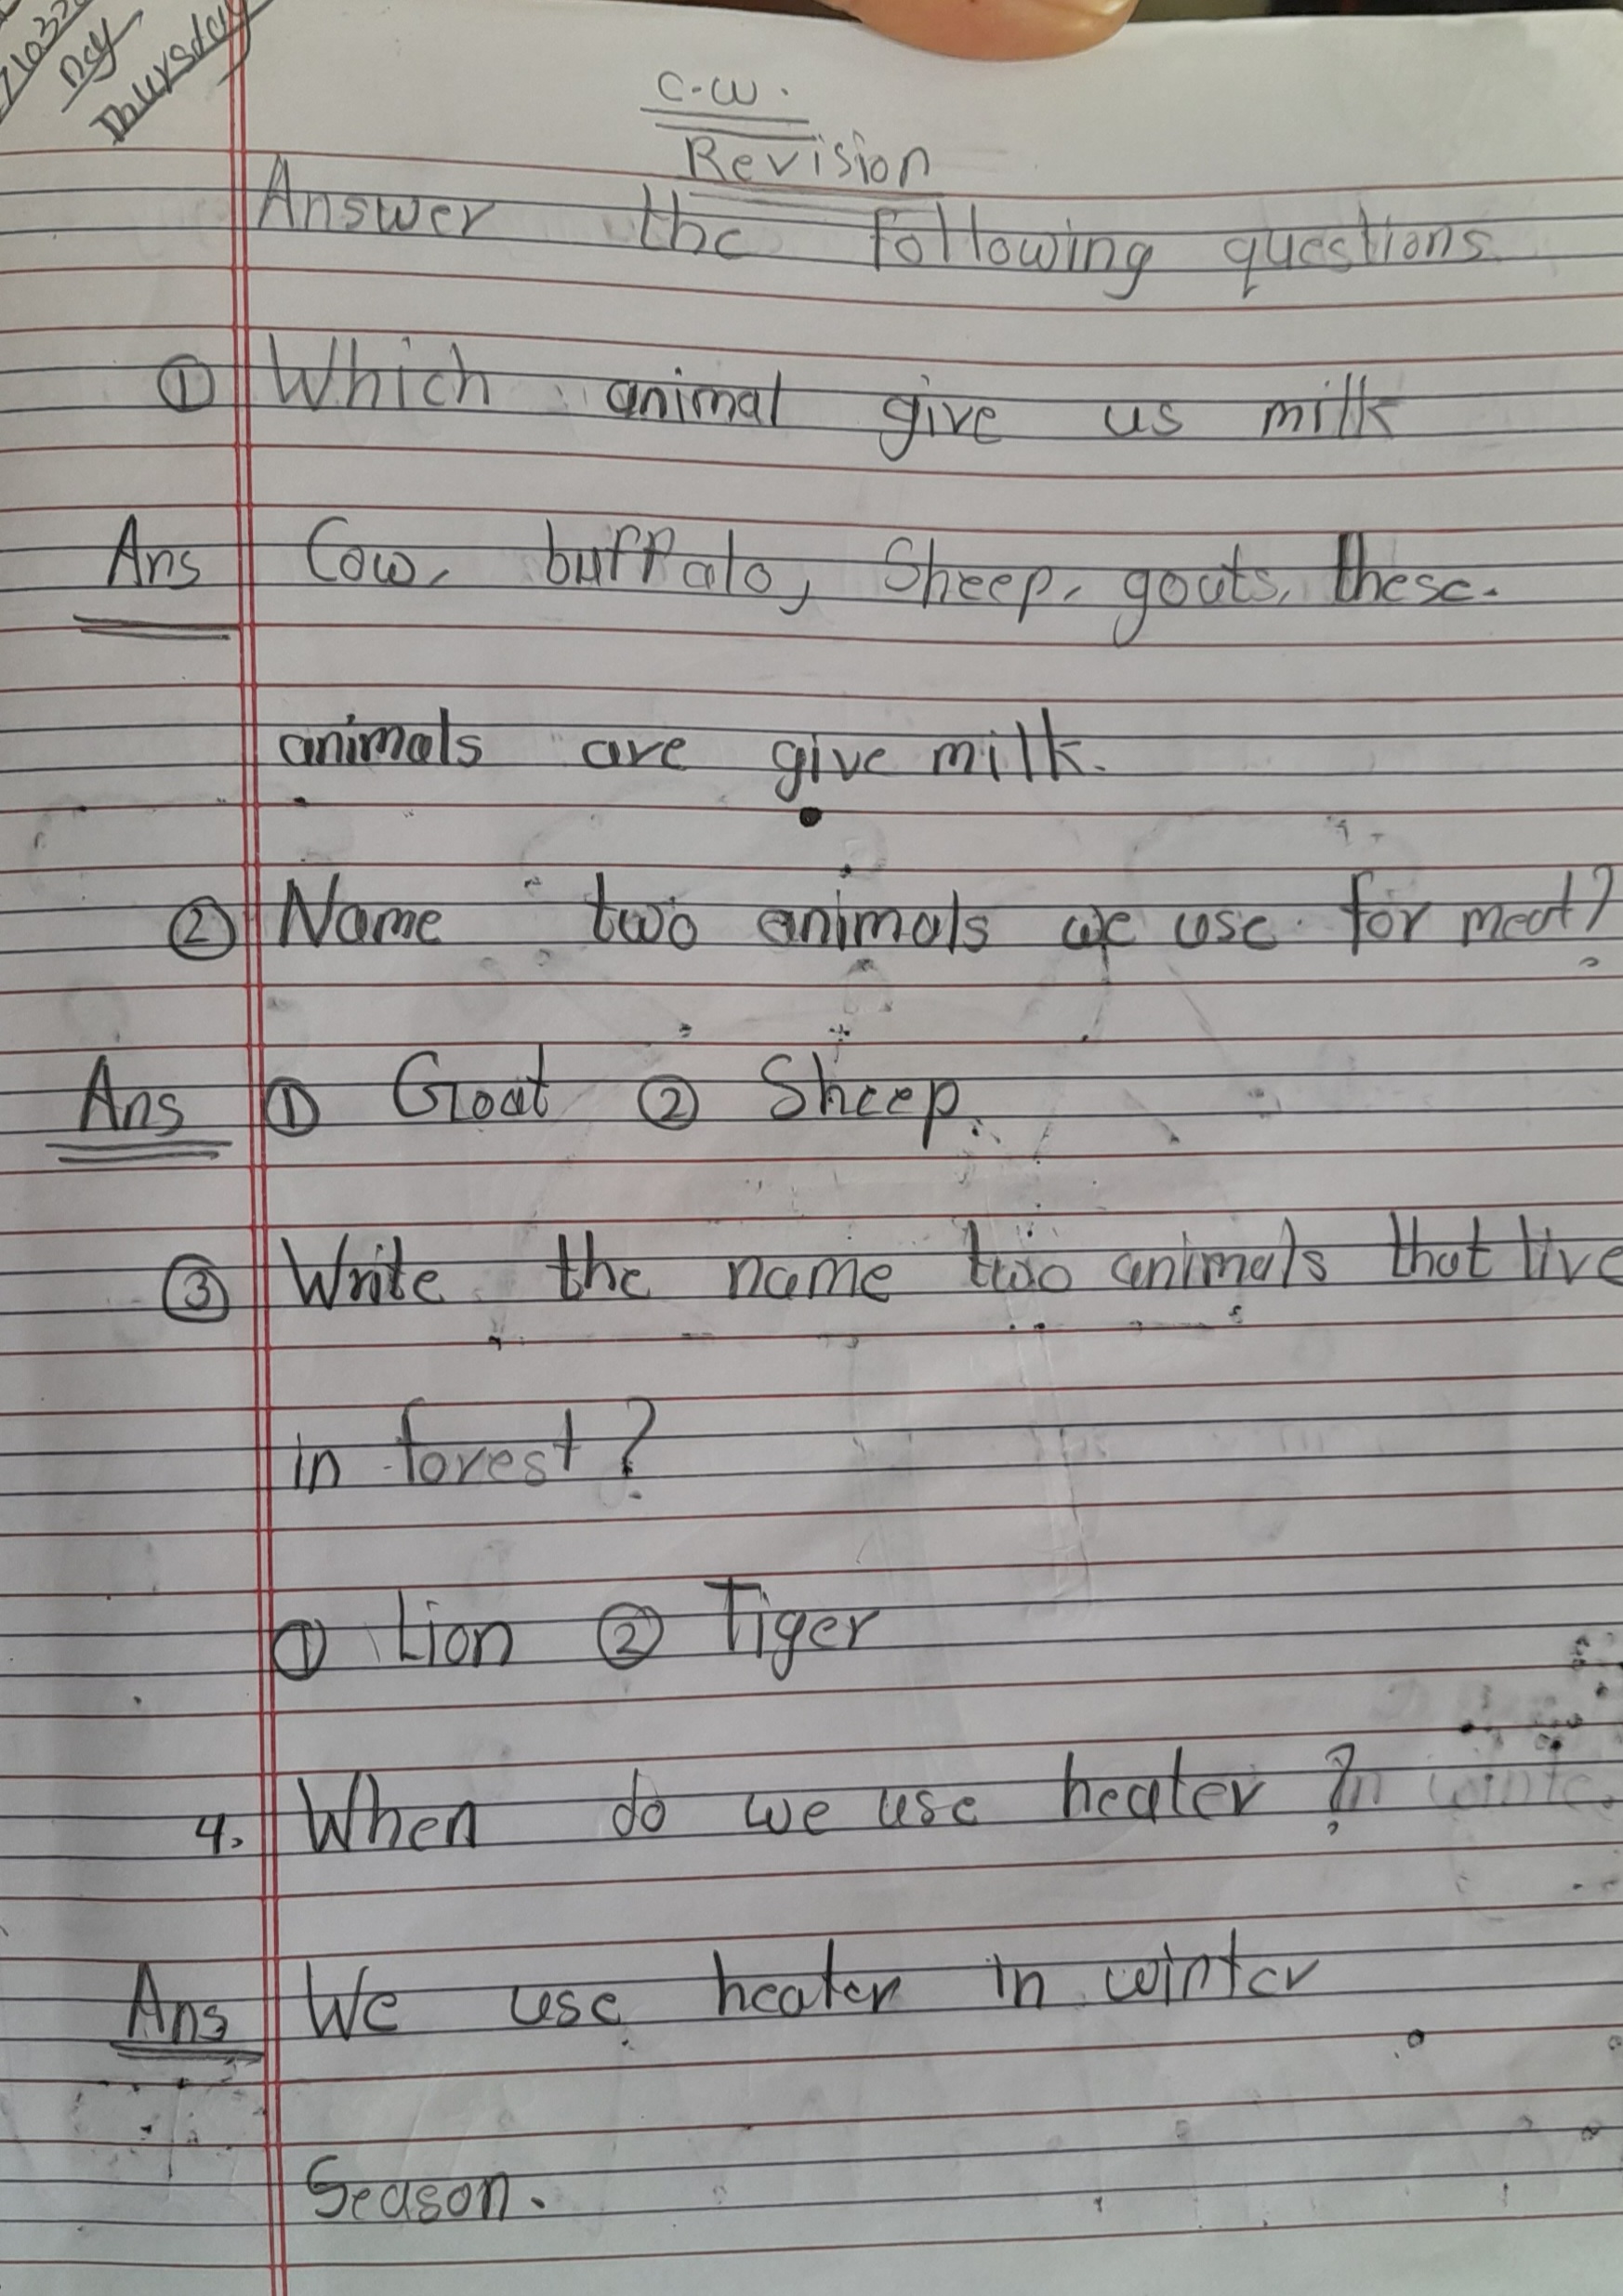 Day
Thursday
C.W.
Revision
Answer the following questions
① Which animal give us milk
Ans Cow, buffalo, Sheep, goats, these.
animals are give milk.
② Name two animals we use for meat?
Ans ① Goat ② Sheep.
③ Write the name two animals that live
in forest?
① Lion ② Tiger
4. When do we use heater ?
Ans We use heater in winter
Season.